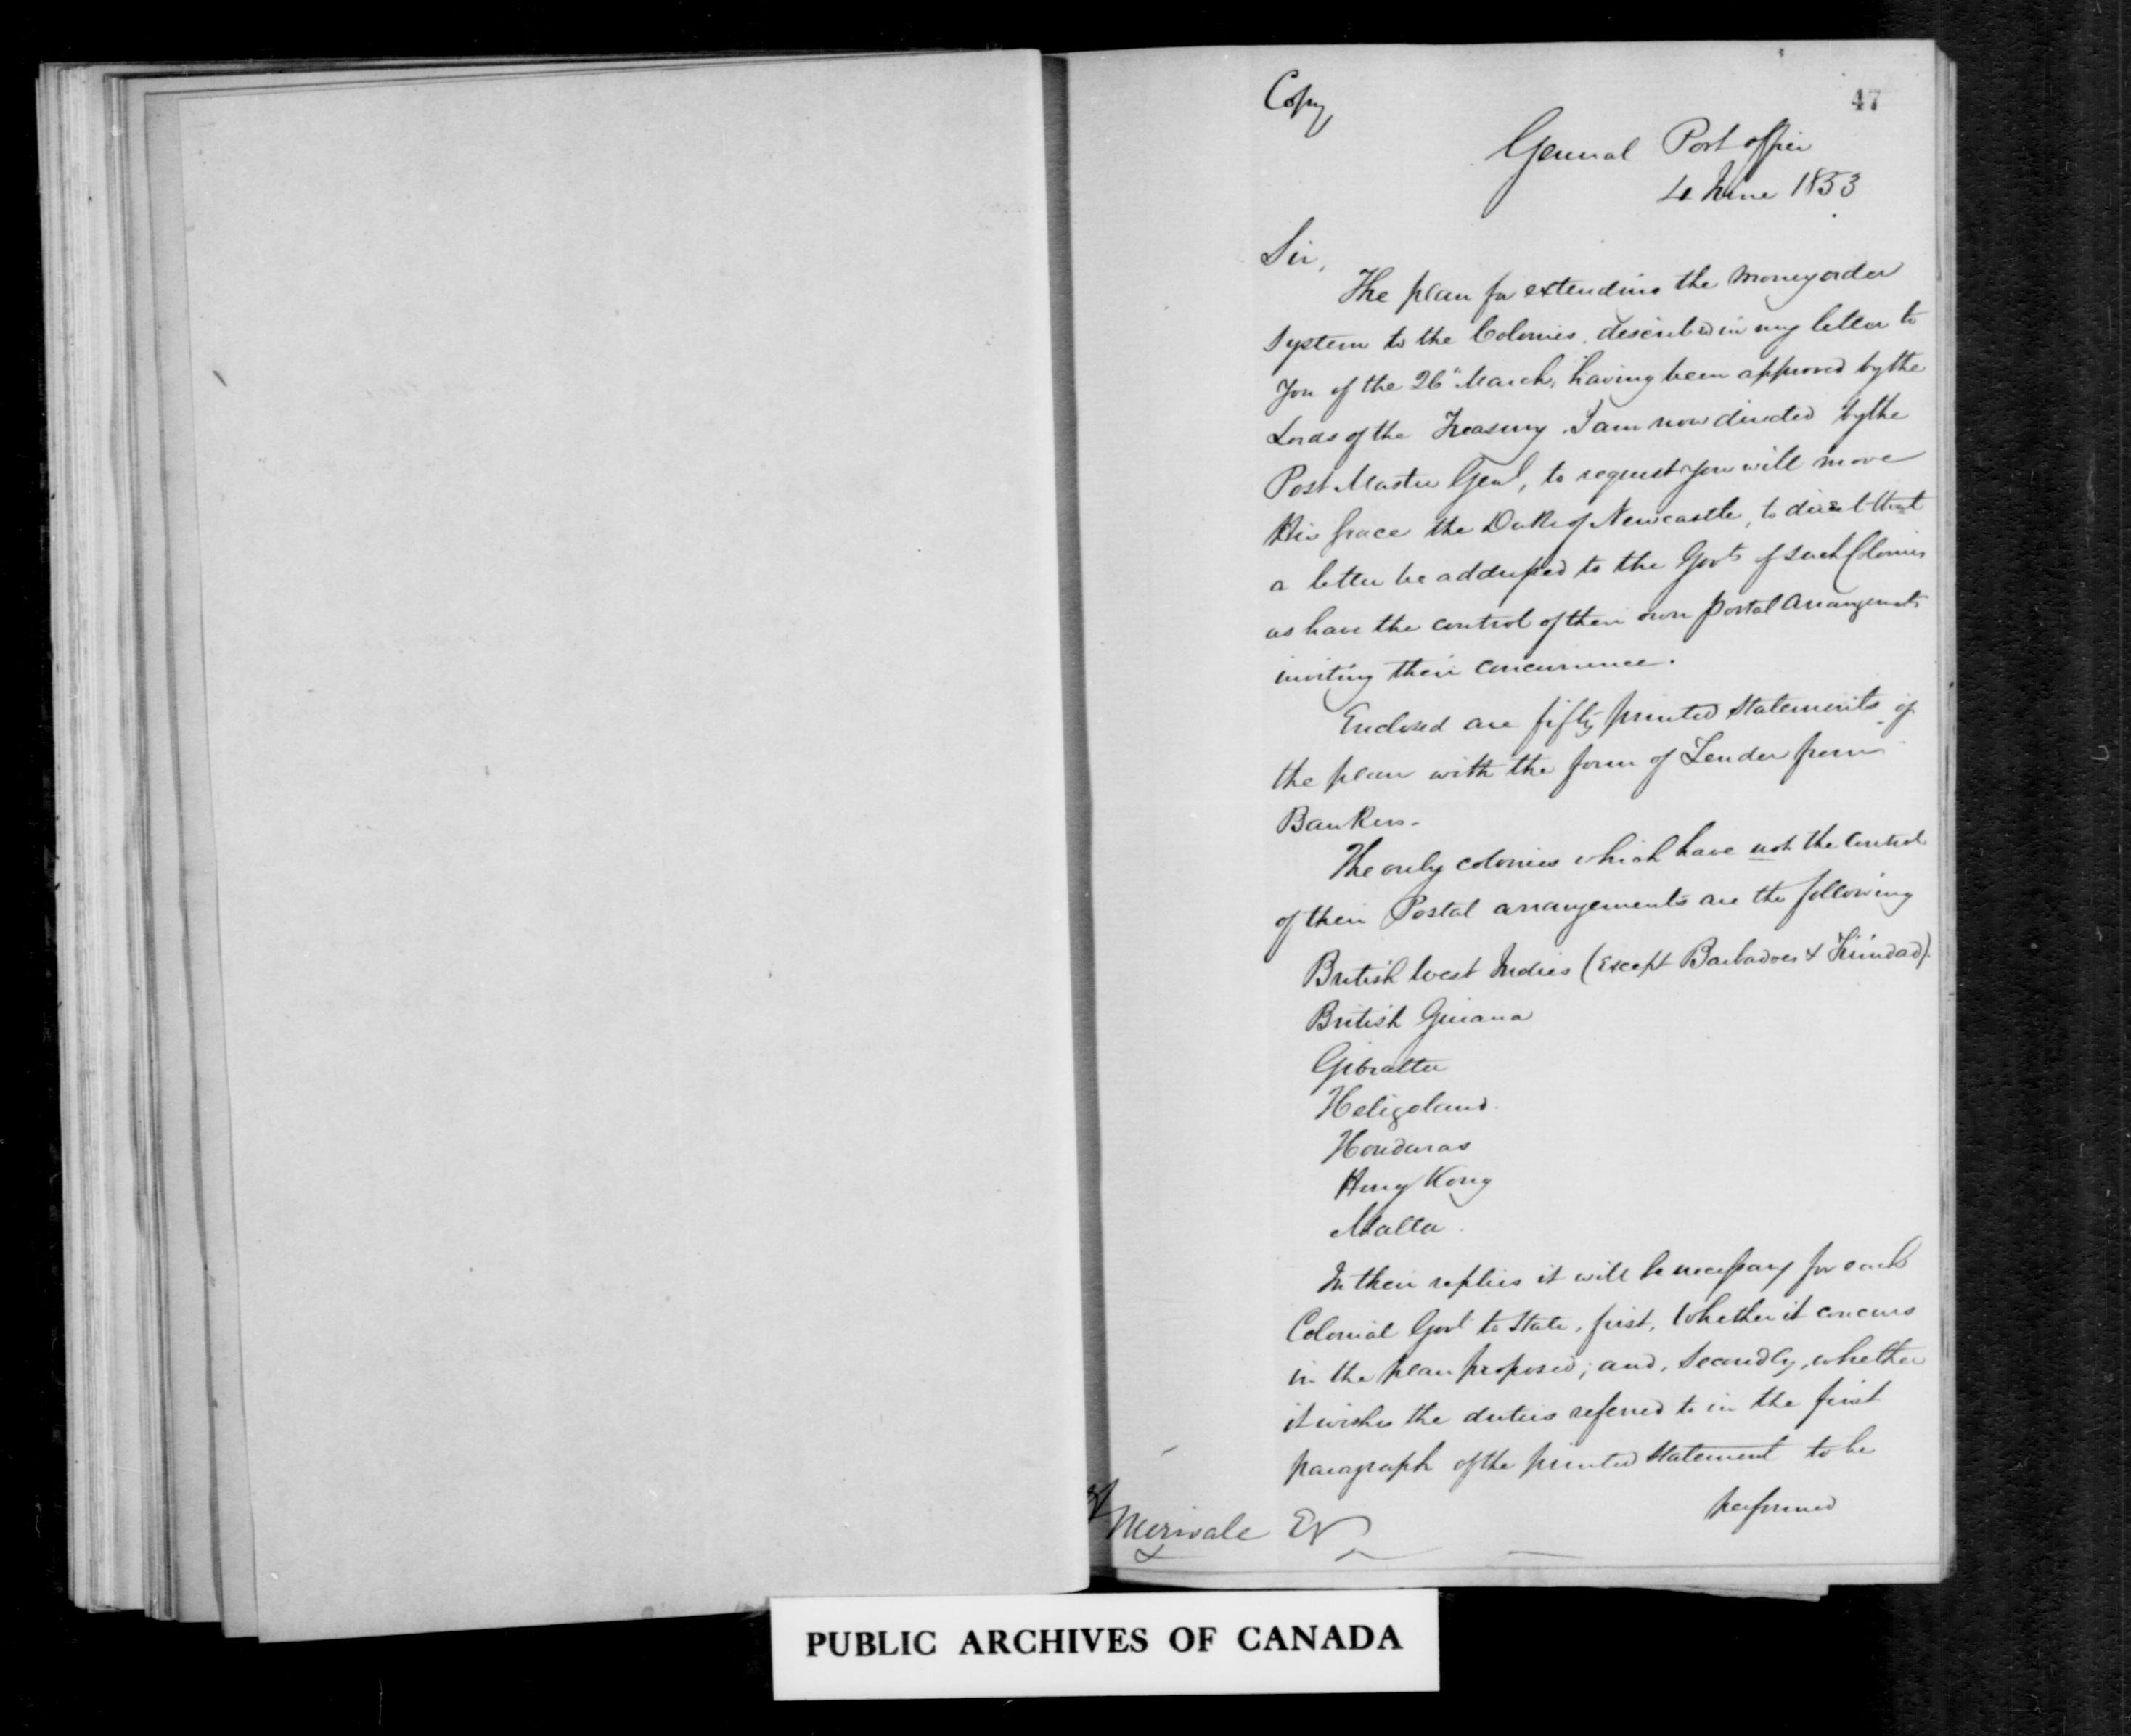 Copy
47
General Post office
4 June 1853
Sir,
The plan for extending the Money order
System to the Colonies, described in my letter to
you of the 26" March, having been approved by the
Lords of the Treasury, I am now directed by the
Post Master Genl, to request you will move
His Grace the Duke of Newcastle, to direct that
a letter be addressed to the Govts of such Colonies
as have the control of their own postal arrangements
inviting their concurrence.
Enclosed are fifty printed statements of
the plan with the form of Tender from
Bankers.
The only colonies which have not the control
of their Postal arrangements are the following
British West Indies (except Barbadoes & Trinidad).
British Guiana
Gibralter
Heligoland.
Honduras
Hong Kong
Malta.
In their replies it will be necessary for each
Colonial Govt to state, first, Whether it concurs
in the plan proposed; and, Secondly, whether
it wishes the duties referred to in the first
paragraph of the printed statement to be
performed
H Merivale Esq
PUBLIC ARCHIVES OF CANADA